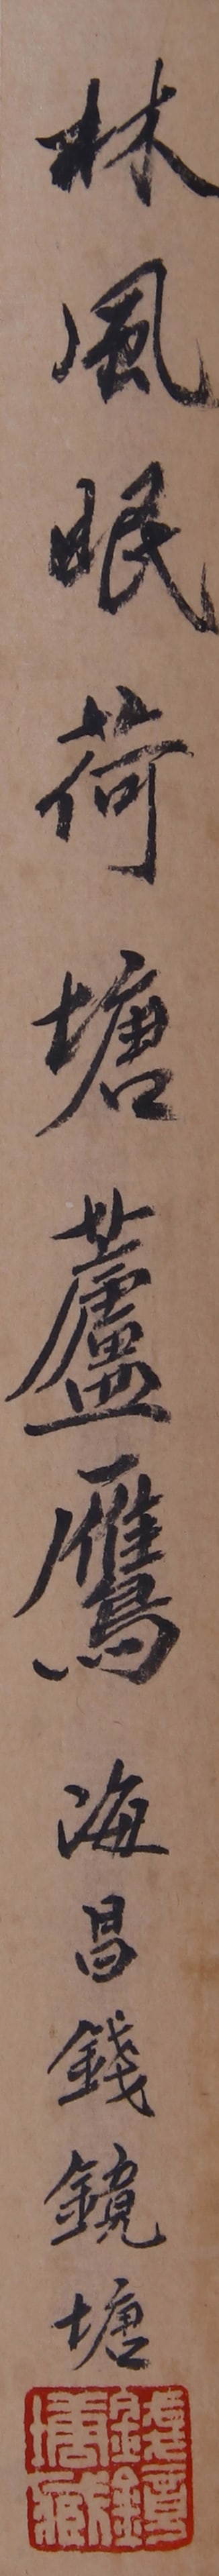 林風眠荷塘蘆鴈
海昌錢鏡塘
錢鏡塘藏